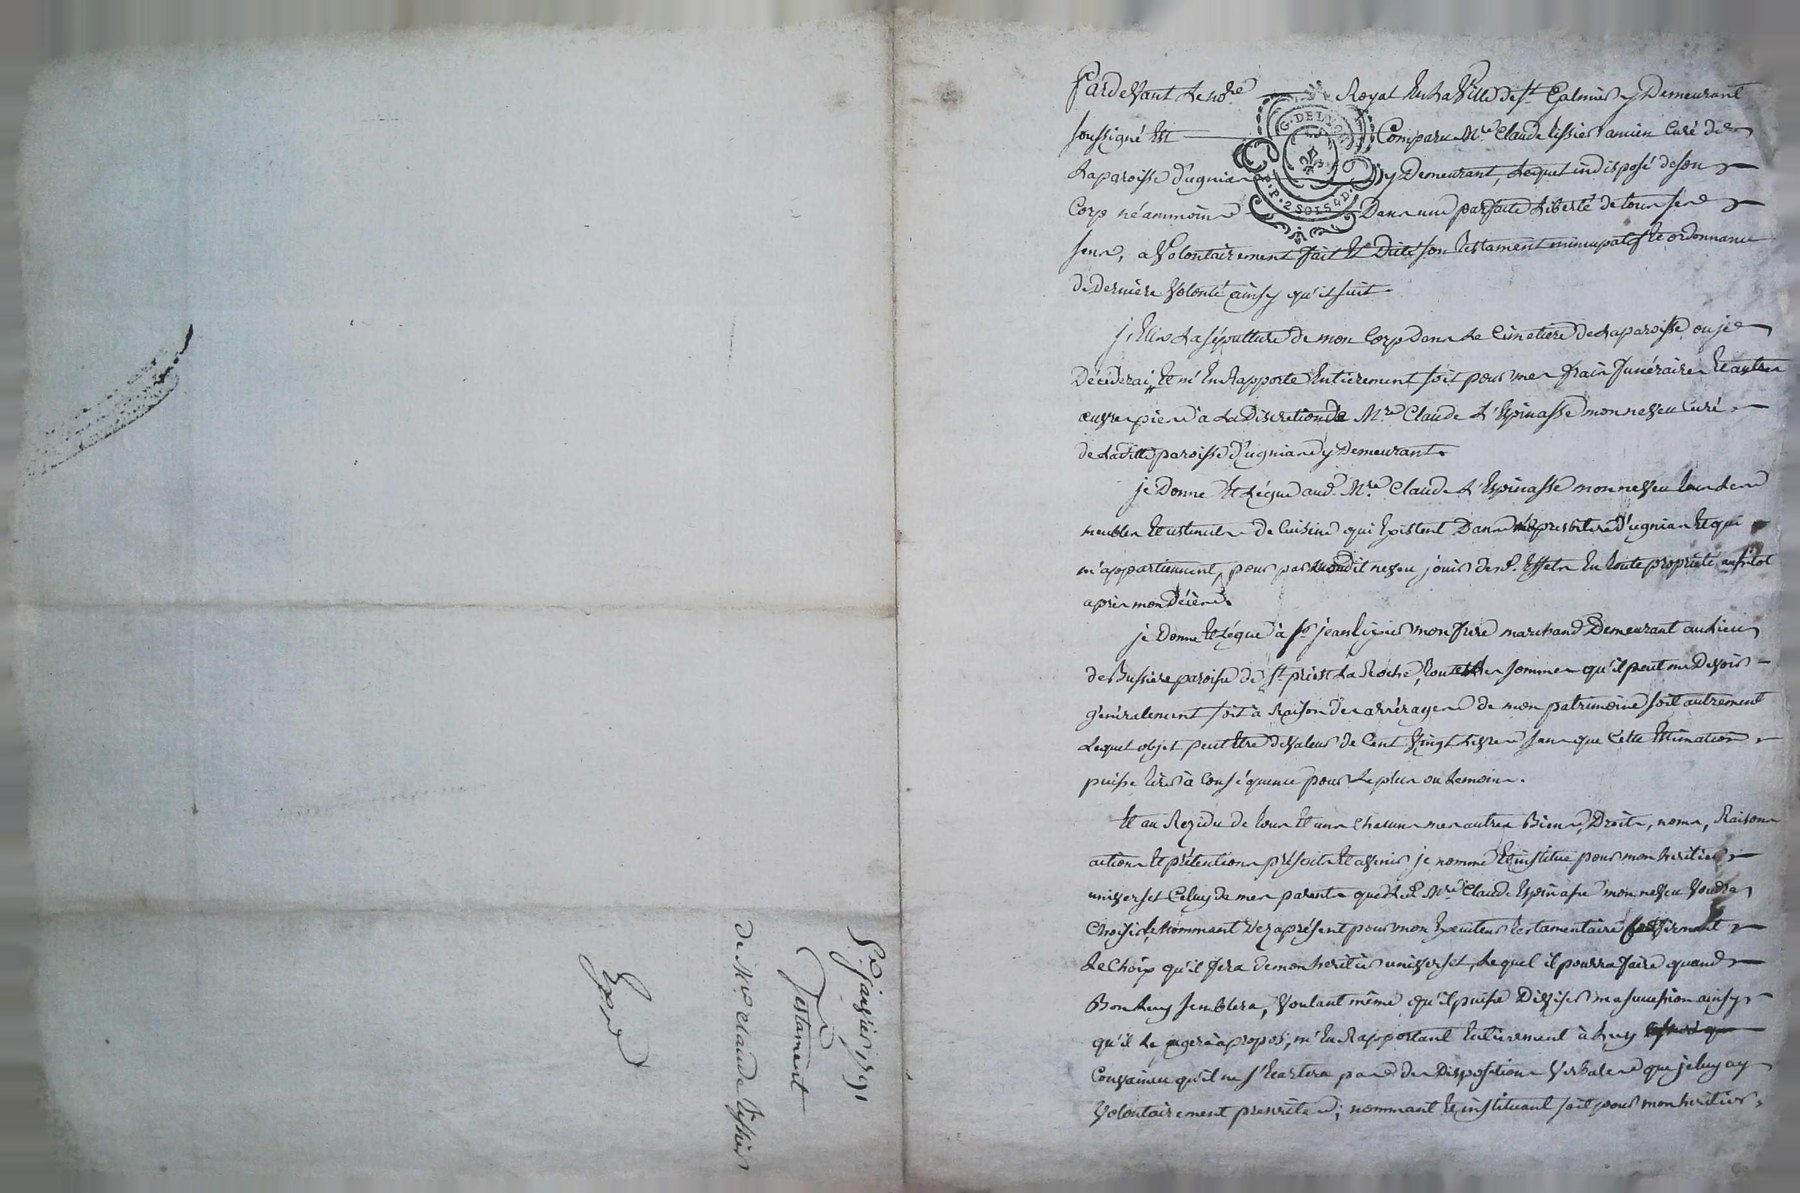 Pardevant le no.re Royal en la Ville de St. Galmier y Demeurant
soussigné Est Comparu Mre Claude ancien Curé de
la paroisse d'ugnias y Demeurant, lequel indisposé de son
Corp néammoins Dans une parfaite liberté de tous ses
sens, a Volontairement fait Et Dicté son testament nuncupatif Et ordonnance
de Derniere Volonté ainsy qu'il suit.
j'Elis la sépulture de mon Corp dans le Cimetiere de la paroisse ou je
Déciderai, Et m'En Rapporte Entierement soit pour mes frais funéraires Et autres
œuvres pies à la Discretion de Mre Claude L'Espinasse mon neveu Curé
de la ditte paroisse d'ugnias y Demeurant.
je Donne Et Légue aud. Mre Claude L'Espinasse mon neveu tous les
meubles Et ustencils de Cuisine qui Existent Dans presbitere d'ugnias Et qui
m'appartiennent, pour par mondit neveu jouir desd. Effets En toute propriété ausitot
après mon Décès.
je Donne Et Légue à sr jean mon frere marchand Demeurant au lieu
de Bussiere paroisse de St priest La Roche, toutes les sommes qu'il peut me Devoir
généralement soit à Raison des arrérages de mon patrimoine soit autrement
Lequel objet peut Etre de Valeur de Cent Vingt Livres sans que Cette Estimation
puisse tirer à Conséquence pour le plus ou le moins.
Et au Rezidu de tous Et uns chacuns mes autres Biens, Droits, noms, Raisons
actions Et prétentions présents Et avenir je nomme Et institue pour mon heritier
universel Celuy de mes parents que led. Mre Claude Espinasse mon neveu Voudra
Choisir, le Nommant Dez aprésent pour mon Executeur testamentaire
Le Choix qu'il fera de mon heritier universel, Lequel il pourra faire quand
Bon Luy semblera, Voulant même qu'il puisse Diviser ma succession ainsy
qu'il le jugera à propos, m'En Rapportant Entierement à Luy
Convaincu qu'il ne s'Ecartera pas des Dispositions Verbales que je luy ay
Volontairement prescrites; nommant Et instituant soit pour mon heritier
5e. janvier 1791
Testament
de Mre Claude
Exped
G. DE LYON
P. P. 2 SOLS 4 D.